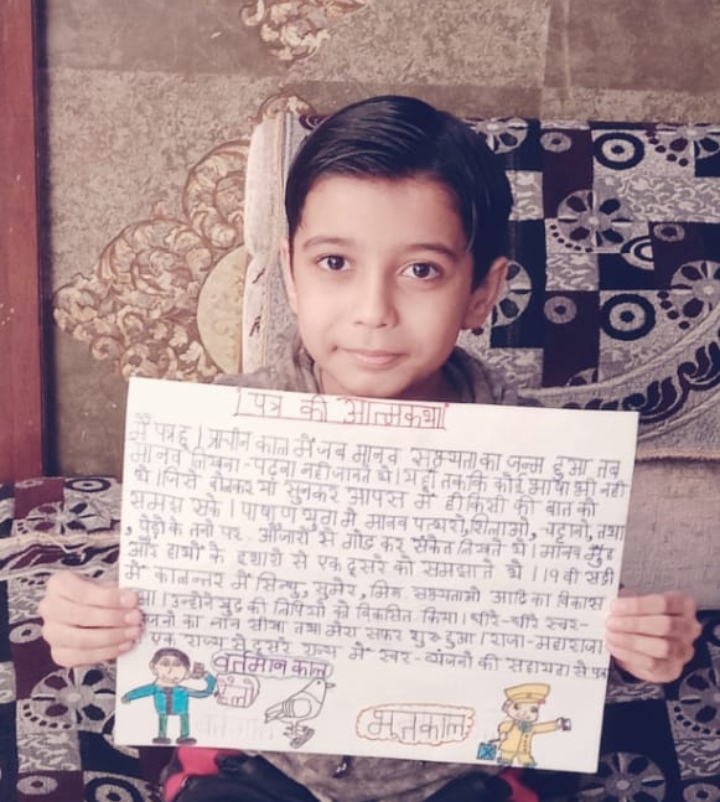 पत्र की आत्मकथा
मैं पत्र हूं। प्राचीन काल में जब मानव सभ्यता का जन्म हुआ तब
मानव लिखना-पढ़ना नहीं जानते थे। यहाँ तककि कोई भाषा भी नहीं
थे। जिसे बोलकर या सुनकर आपस में ही किसी की बात को
समझ सके। पाषाण युग में मानव पत्थरो, शिलाओ, चट्टानो, तथा
, पेड़ो के तनो पर औजारो से गोद कर संकेत लिखते थे। मानव मुंह
और हाथों के इशारो से एक दूसरे को समझाते थे। 19वी सदी
में कालान्तर में सिन्धु, सुमेर, मिस्र सभ्यताओ आदि का विकास
। उन्होने खुद की लिपियों को विकसित किया। धीरे-धीरे स्वर-
का ज्ञान सीखा तथा मेरा सफर शुरू हुआ। राजा-महाराजा
एक राज्य से दूसरे राज्य में स्वर-व्यंजनो की सहायता से पत्र
वर्तमान काल
हैलो
भूतकाल